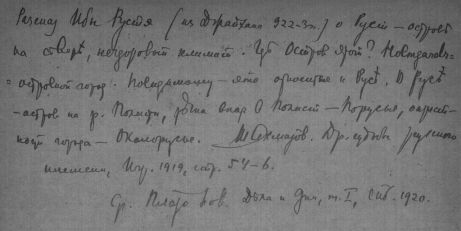 Рассказ Ибн Рустя (из Джайхани 922-3г.) о Руси – остров
на сѣверѣ, нездоровый климат. Гдѣ Остров этот? Holmgardr –
= островной город. Повидимому – это относится к Русѣ. О Русѣ
– остров на р. Полисти, рѣка впад. в Полисть – Порусье, окрест-
ности города – Околорусье. Шахматов. Др. судьбы русского
племени, Птр. 1919, стр. 54–6.
Ср. Плато нов. Дѣла и Дни, т. I, Спб. 1920.